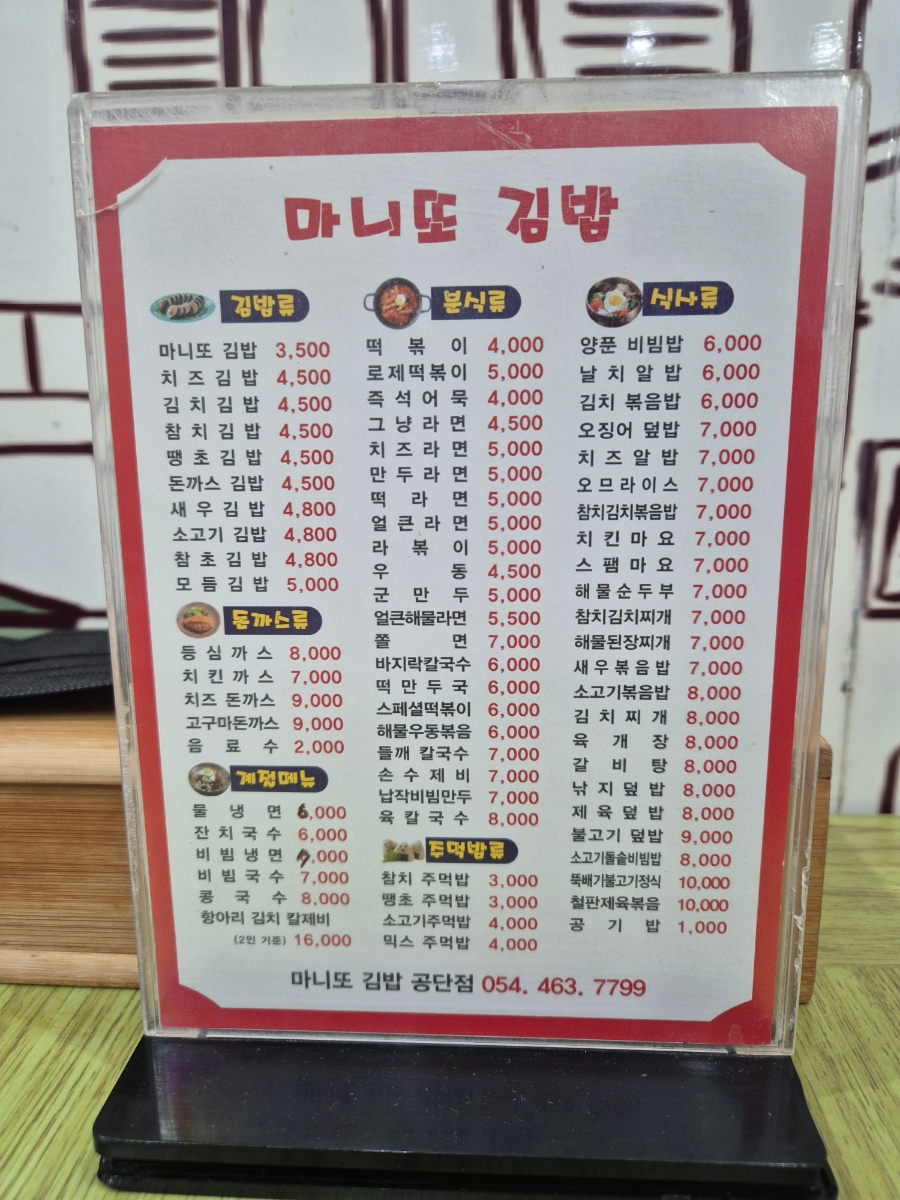 마니또 김밥
김밥류
마니또 김밥 3,500
치즈김밥 4,500
김치김밥 4,500
참치김밥 4,500
땡초김밥 4,500
돈까스 김밥 4,500
새우김밥 4,800
소고기 김밥 4,800
참초김밥 4,800
모듬김밥 5,000
돈까스류
등심까스 8,000
치킨까스 7,000
치즈 돈까스 9,000
고구마돈까스 9,000
음료수 2,000
계절메뉴
물냉면 6,000
잔치국수 6,000
비빔냉면 7,000
비빔국수 7,000
콩국수 8,000
항아리 김치 칼제비
(2인 기준) 16,000
분식류
떡볶이 4,000
로제떡볶이 5,000
즉석어묵 4,000
그냥라면 4,500
치즈라면 5,000
만두라면 5,000
떡라면 5,000
얼큰라면 5,000
라볶이 5,000
우동 4,500
군만두 5,000
얼큰해물라면 5,500
쫄면 7,000
바지락칼국수 6,000
떡만두국 6,000
스페셜떡볶이 6,000
해물우동볶음 6,000
들깨 칼국수 7,000
손수제비 7,000
납작비빔만두 7,000
육칼국수 8,000
주먹밥류
참치 주먹밥 3,000
땡초 주먹밥 3,000
소고기주먹밥 4,000
믹스 주먹밥 4,000
식사류
양푼 비빔밥 6,000
날치알밥 6,000
김치 볶음밥 6,000
오징어 덮밥 7,000
치즈알밥 7,000
오므라이스 7,000
참치김치볶음밥 7,000
치킨마요 7,000
스팸마요 7,000
해물순두부 7,000
참치김치찌개 7,000
해물된장찌개 7,000
새우볶음밥 7,000
소고기볶음밥 8,000
김치찌개 8,000
육개장 8,000
갈비탕 8,000
낚지덮밥 8,000
제육덮밥 8,000
불고기 덮밥 9,000
소고기돌솥비빔밥 8,000
뚝배기불고기정식 10,000
철판제육볶음 10,000
공기밥 1,000
마니또 김밥 공단점 054. 463. 7799